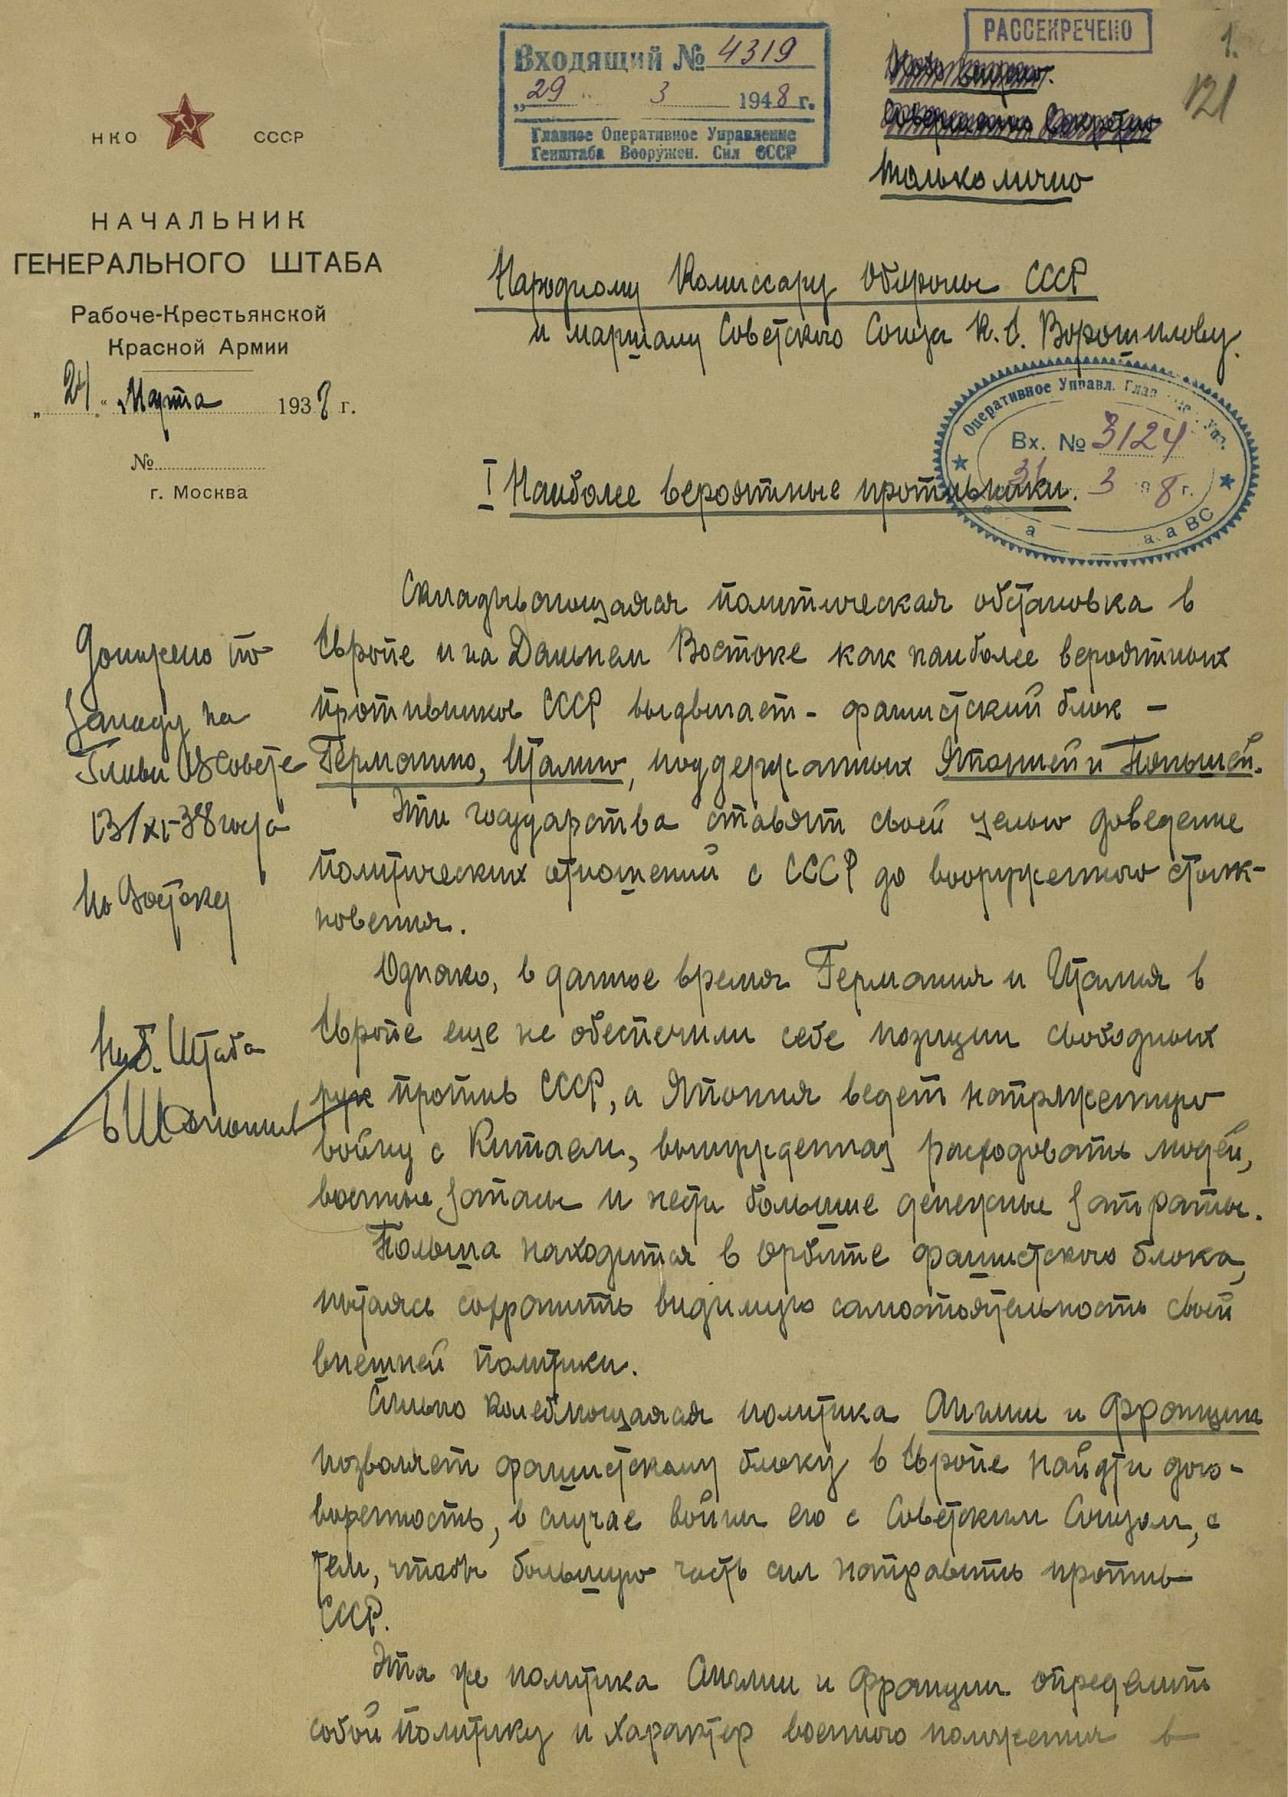 РАССЕКРЕЧЕНО
1.
121
Входящий № 4319
„29" 3 1948 г.
Главное Оперативное Управление
Генштаба Вооружен. Сил СССР
Совершенно Секретно
только лично
НКО СССР
НАЧАЛЬНИК
ГЕНЕРАЛЬНОГО ШТАБА
Рабоче-Крестьянской
Красной Армии
„24" Марта 1938 г.
№
г. Москва
Народному Комиссару Обороны СССР
и маршалу Советского Союза К.Е. Ворошилову.
Оперативное Управл. Глав
Вх. № 3124
31 3 8 г.
I Наиболее вероятные противники.
Складывающаяся политическая обстановка в
Европе и на Дальнем Востоке как наиболее вероятных
противников СССР выдвигает - фашистский блок -
Германию, Италию, поддержанных Японией и Польшей.
Эти государства ставят своей целью доведение
политических отношений с СССР до вооруженного столк-
новения.
Однако, в данное время Германия и Италия в
Европе еще не обеспечили себе позиции свободных
рук против СССР, а Япония ведет напряженную
войну с Китаем, вынужденная расходовать людей,
военные запасы и нести большие денежные затраты.
Польша находится в орбите фашистского блока,
пытаясь сохранить видимую самостоятельность своей
внешней политики.
Сильно колеблющаяся политика Англии и Франции
позволяет фашистскому блоку в Европе найти дого-
воренность, в случае войны его с Советским Союзом, с
тем, чтобы большую часть сил направить против
СССР.
Эта же политика Англии и Франции определит
собой политику и характер военного положения в
Доложено по
западу на
Главн В Совете
13/XI-38 года
по Востоку
Нач. Штаба
БШапошников